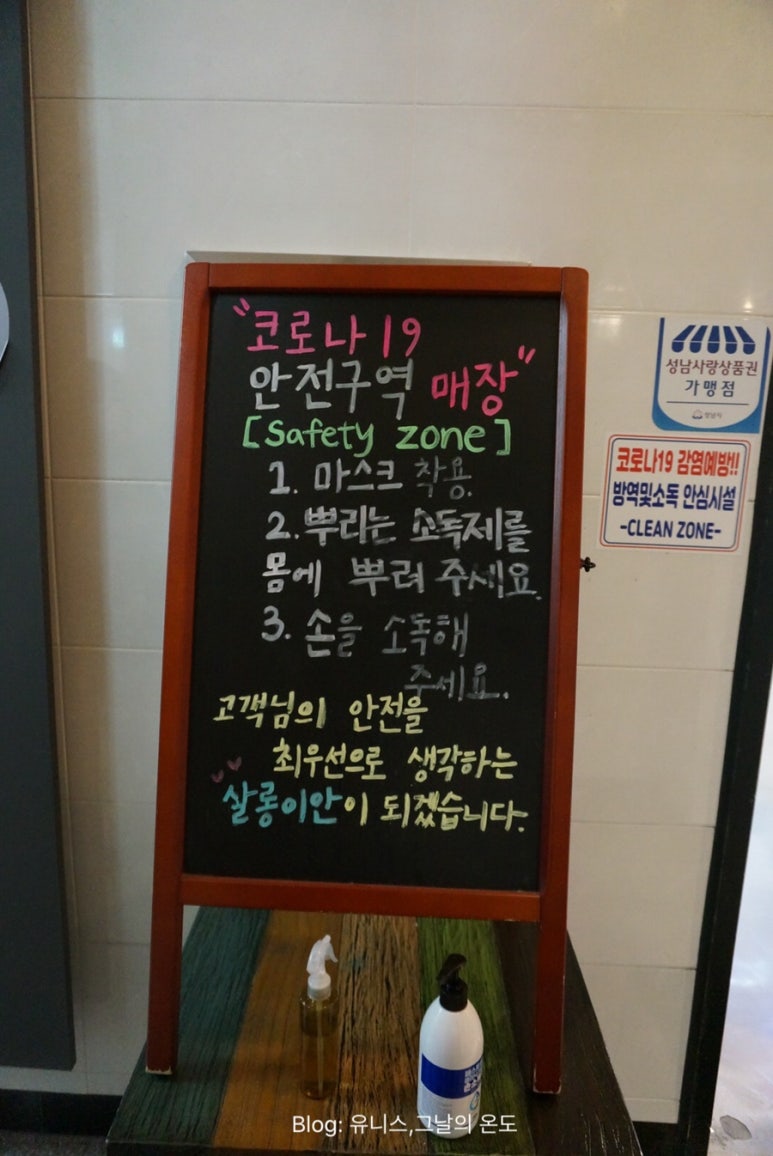 "코로나19
안전구역 매장"
[Safety zone]
1. 마스크 착용.
2. 뿌리는 소독제를
몸에 뿌려 주세요.
3. 손을 소독해
주세요.
고객님의 안전을
최우선으로 생각하는
살롱이안이 되겠습니다.
성남사랑상품권
가맹점
성남시
코로나19 감염예방!!
방역및소독 안심시설
-CLEAN ZONE-
Blog: 유니스,그날의 온도